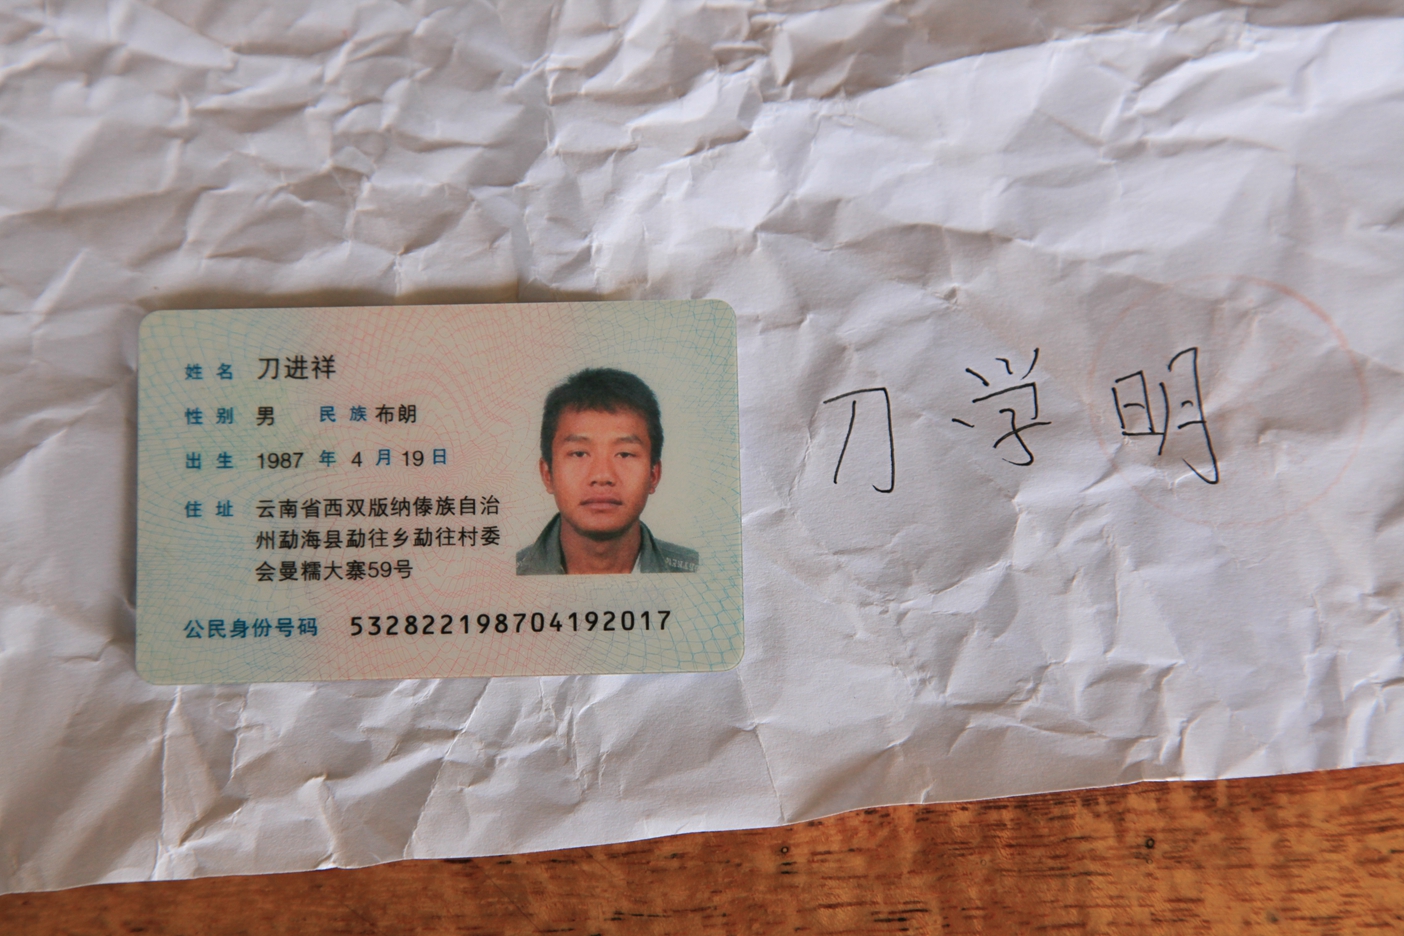 姓名 刀进祥
性别 男 民族 布朗
出生 1987 年 4 月 19 日
住址 云南省西双版纳傣族自治
州勐海县勐往乡勐往村委
会曼糯大寨59号
公民身份号码 532822198704192017
刀学明